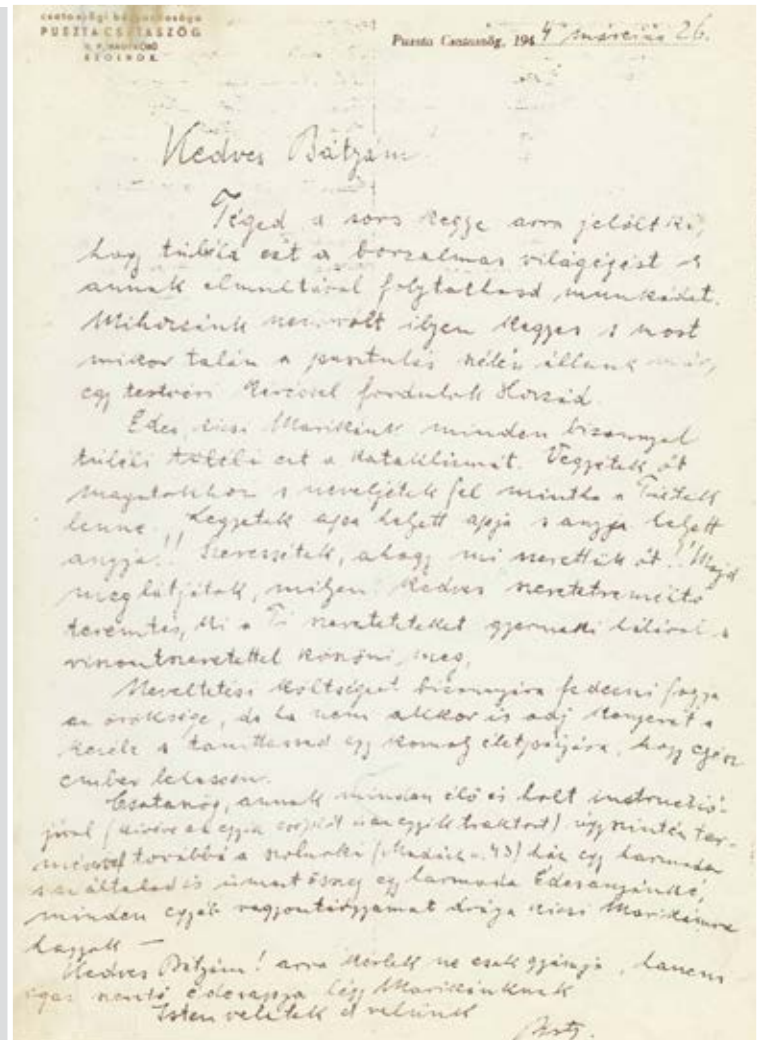 csataszögi bérgazdasága
PUSZTA CSATASZÖG
U. P. NAGYKÖRŰ
SZOLNOK.
Puszta Csataszög, 1944 március 26.
Kedves Bátyám
Téged a sors kegye arra jelölt ki,
hogy túléld ezt a borzalmas világégést s
annak elmultával folytathasd munkádat.
Mihozzánk nem volt ilyen kegyes s most
mikor talán a pusztulás szélén állunk már,
egy testvéri kéréssel fordulok Hozzád.
Édes kicsi Marikánk minden bizonnyal
túléli ezt a kataklizmát. Vegyétek őt
magatokhoz s neveljétek fel mintha a Tiétek
lenne. Legyetek apja helyett apja s anyja helyett
anyja!! Szeressétek, ahogy mi szerettük őt!! Majd
meglátjátok, milyen kedves szeretetreméltó
teremtés, ki a Ti szereteteteket gyermeki hálával s
viszontszeretettel köszöni meg.
Neveltetési költségeit bizonyára fedezni fogja
az öröksége, de ha nem akkor is adj kenyeret a
kezébe s taníttassad egy komoly életpályára, hogy egész
ember lehessen.
Csataszög, annak minden élő és holt instructió-
jával (kivéve az egyik cséplőt s az egyik traktort) úgyszintén ter-
mésével továbbá a szolnoki (Madách u. 43) ház egy harmada
s az általad is ismert összeg egy harmada Édesanyánké,
minden egyéb vagyontárgyamat drága kicsi Marikámra
hagyok —
Kedves Bátyám! arra kérlek ne csak gyámja, hanem
igaz szerető édesapja légy Marikánknak
Isten veletek s velünk